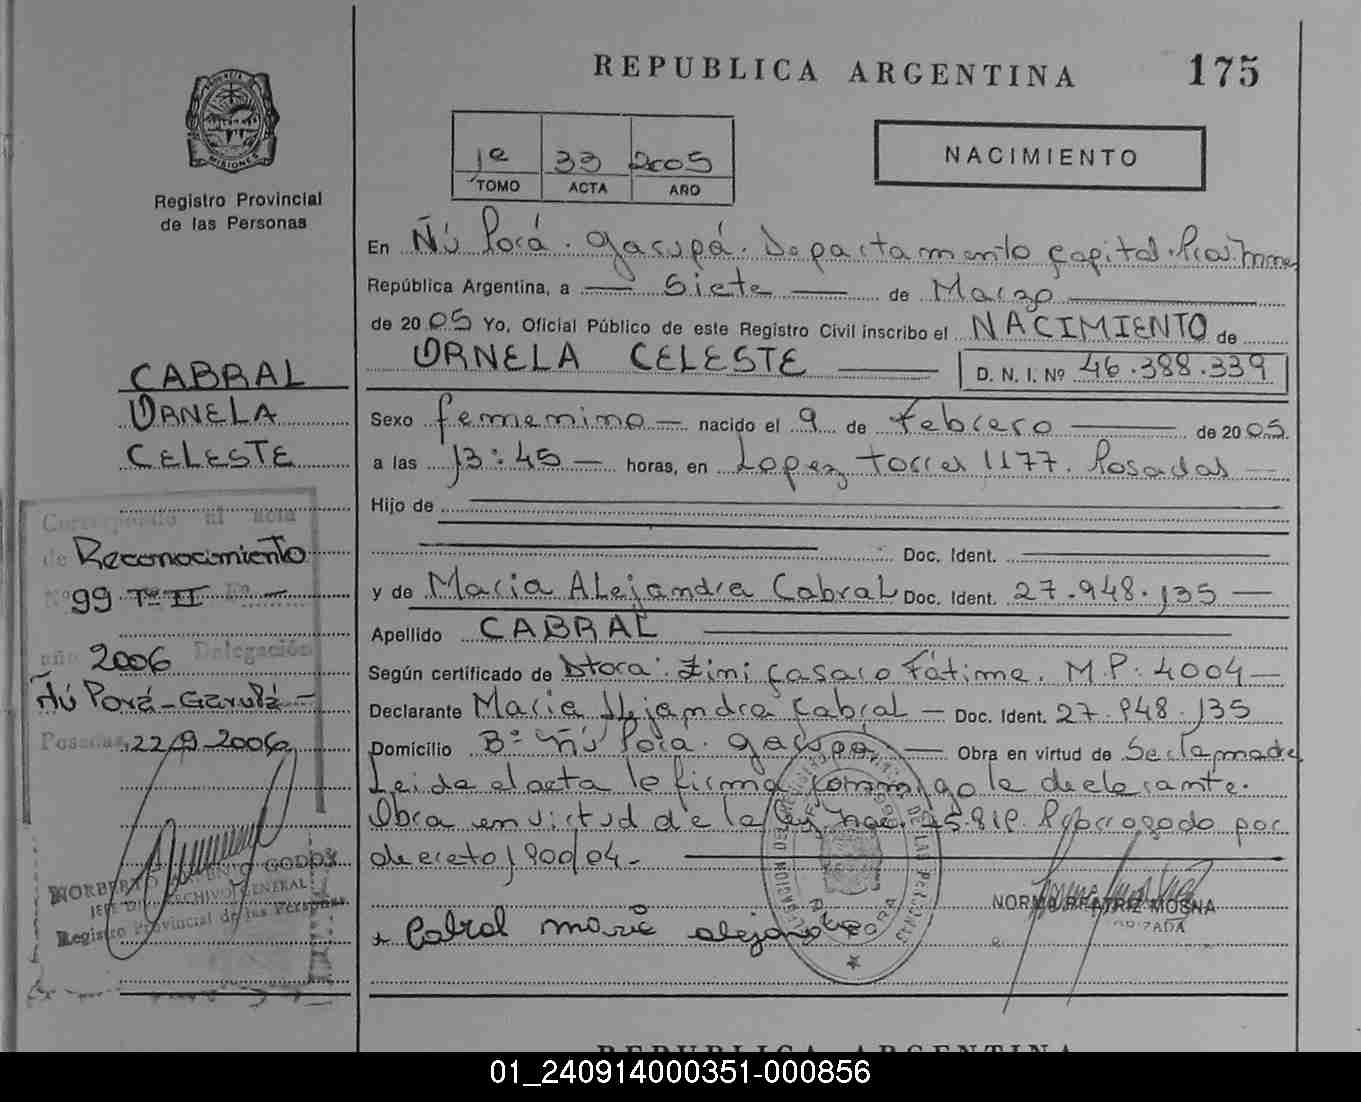 REPUBLICA ARGENTINA 175
Registro Provincial
de las Personas
MISIONES
1º 33 2005
TOMO ACTA AÑO
NACIMIENTO
En Ñú Porá. Garupá. Departamento Capital. Pcia.
República Argentina, a Siete de Marzo
de 2005 Yo, Oficial Público de este Registro Civil inscribo el NACIMIENTO de
ORNELA CELESTE D. N. I. Nº 46.388.339
Sexo femenino nacido el 9 de Febrero de 2005.
a las 13:45 horas, en Lopez Torres 1177. Posadas
Hijo de
Doc. Ident.
y de Maria Alejandra Cabral Doc. Ident. 27.948.135
Apellido CABRAL
Según certificado de Dtora: Fátima. M.P: 4004
Declarante Maria Alejandra Cabral Doc. Ident. 27.948.135
Domicilio Bº Ñú Porá. Garupá Obra en virtud de Ser la madre
Leida el acta la firma conmigo la declarante.
Obra en virtud de la Ley Nac. 25.819. Prorrogado por
decreto 1900/04.
Cabral maria alejandra
NORMA BEATRIZ MOSNA
CABRAL
ORNELA
CELESTE
Correspondio al acta
de Reconocimiento
Nº 99 Tº II Fº
año 2006 Delegación
Ñú Porá-Garupá
Posadas, 22/9-2006
NORBERTO GODOY
JEFE DIV. ARCHIVO GENERAL
Registro Provincial de las Personas
REPUBLICA ARGENTINA
01_240914000351-000856